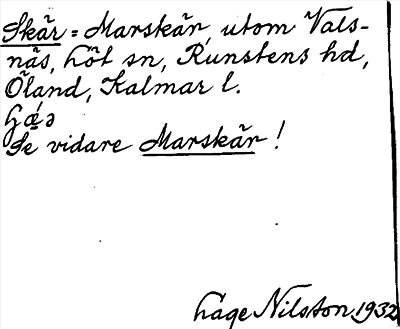 Skär = Marskär, utom Vals-
näs, Löt sn, Runstens hd,
Öland, Kalmar l.
Se vidare Marskär!
Lage Nilston 1932